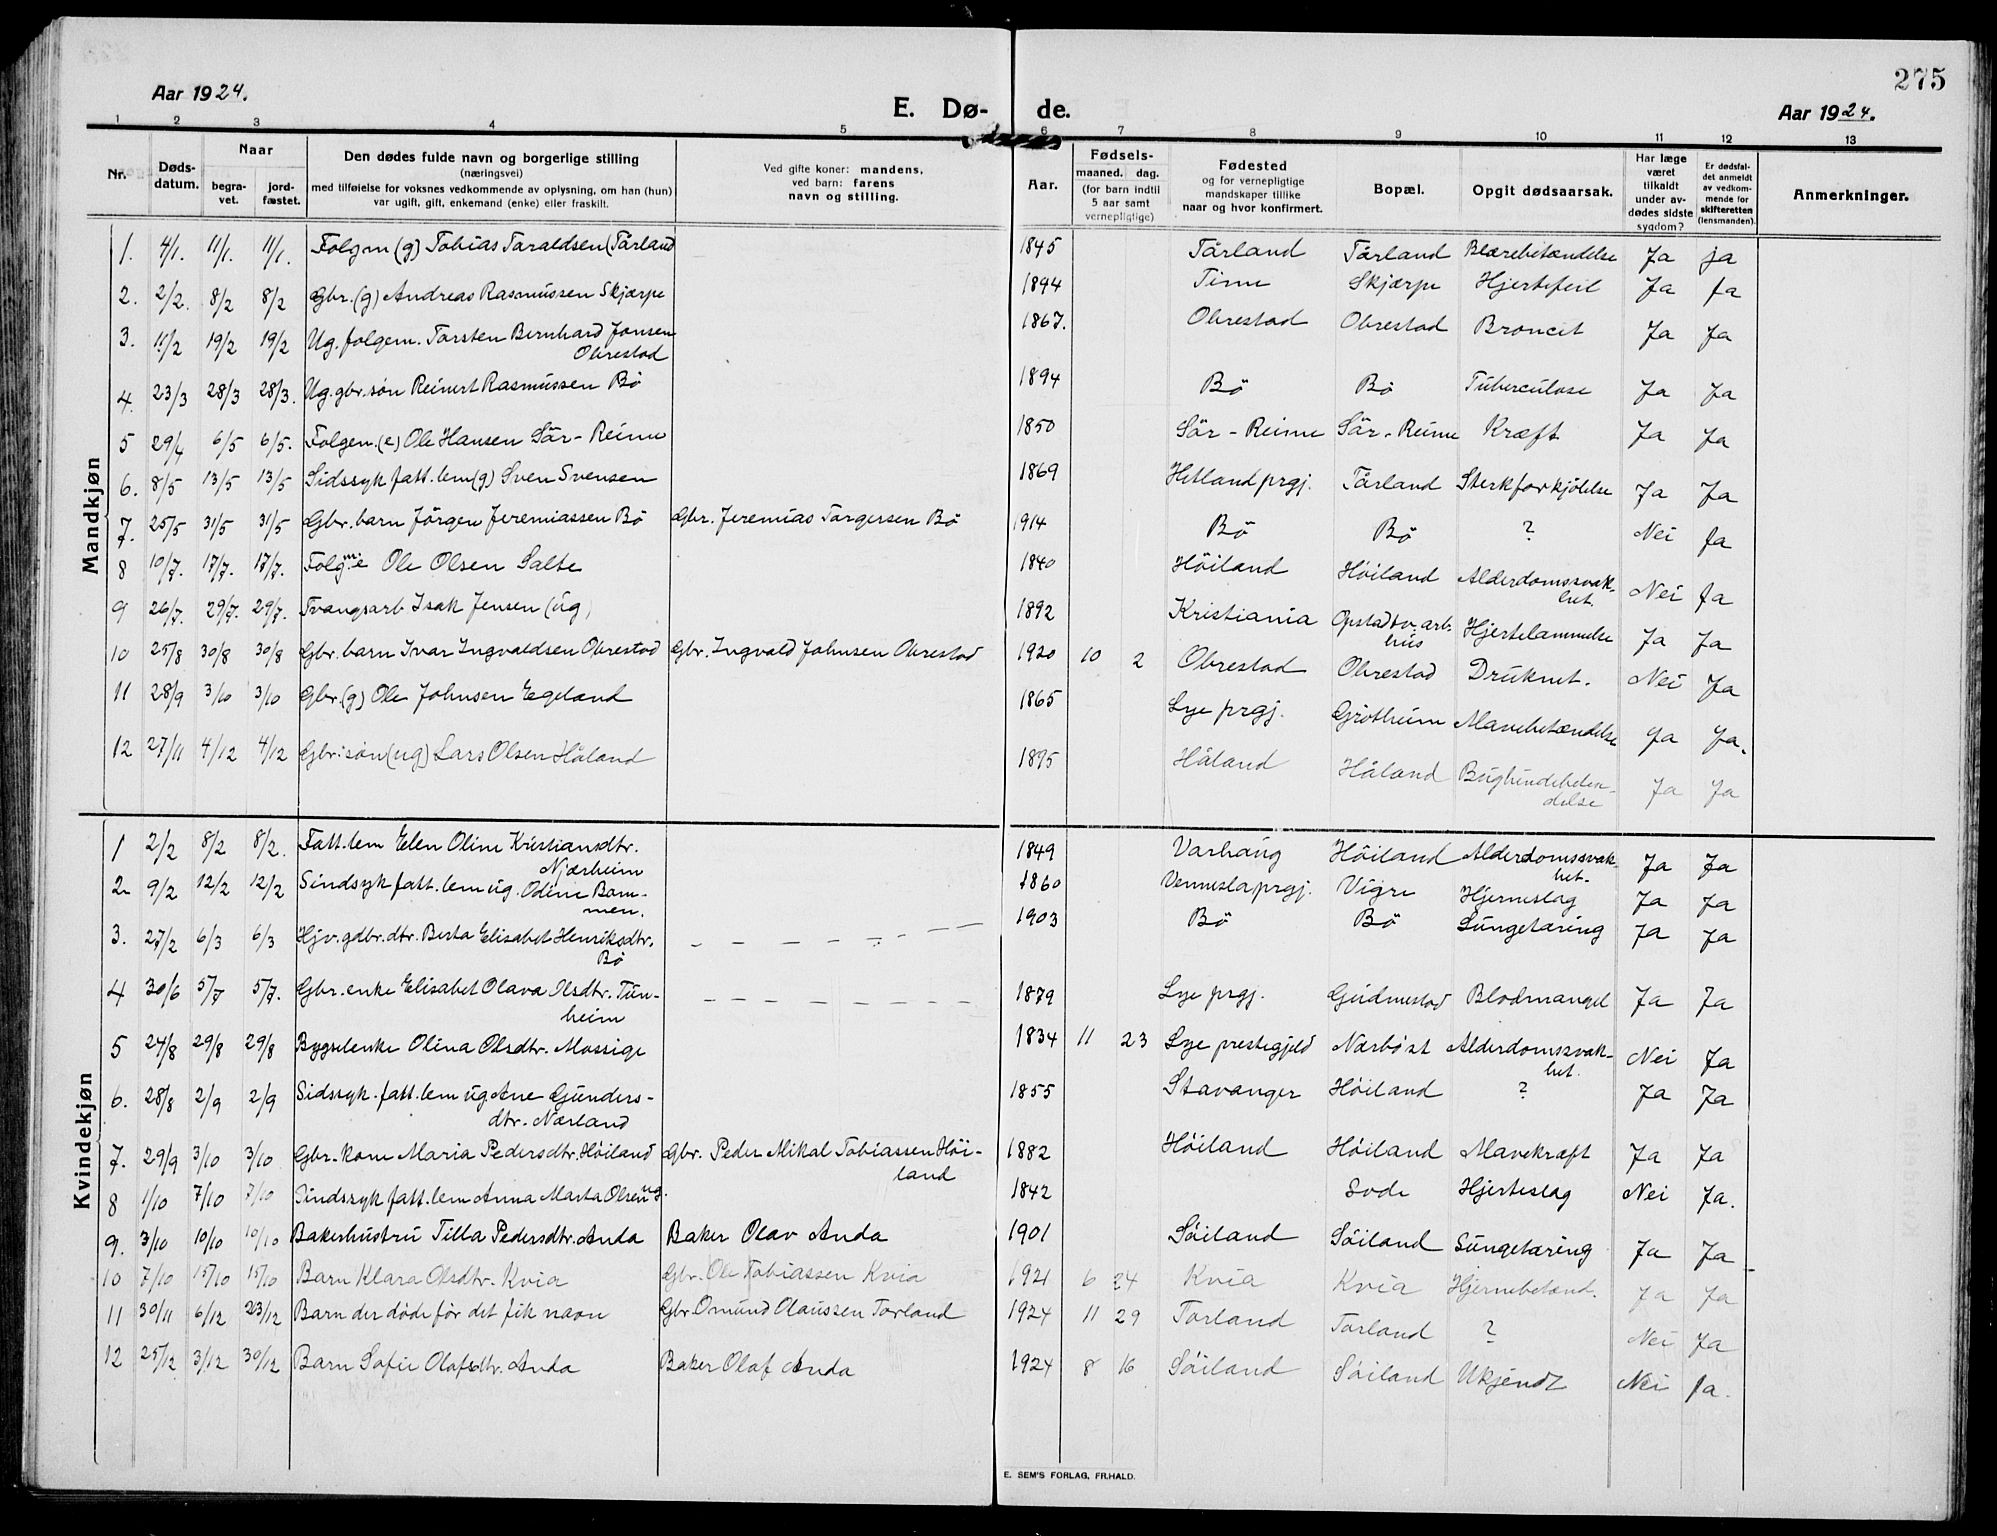 275
Aar 1924.
E. Dø- de.
Aar 1924.
1 2 3 4 5 6 7 8 9 10 11 12 13
Nr.
Døds-
datum.
Naar
begra-
vet.
jord-
fæstet.
Den dødes fulde navn og borgerlige stilling
(næringsvei)
med tilføielse for voksnes vedkommende av oplysning, om han (hun)
var ugift, gift, enkemand (enke) eller fraskilt.
Ved gifte koner: mandens,
ved barn: farens
navn og stilling.
Aar.
Fødsels-
maaned. dag.
(for barn indtil
5 aar samt
vernepligtige)
Fødested
og for vernepligtige
mandskaper tillike
naar og hvor konfirmert.
Bopæl.
Opgit dødsaarsak.
Har læge
været
tilkaldt
under av-
dødes sidste
sygdom?
Er dødsfal-
det anmeldt
av vedkom-
mende for
skifteretten
(lensmanden).
Anmerkninger.
Mandkjøn
1. 4/1. 11/1. 11/1. Folgm (g) Tobias Taraldsen (Tårland 1845 Tårland Tårland Blærebetændelse Ja ja
2. 2/2. 8/2 8/2 Gbr. (g) Andreas Rasmussen Skjærpe 1894 Time Skjærpe Hjertefeil Ja Ja
3. 11/2 19/2 19/2 Ug. folgem. Torsten Bernhard Jonsen
Obrestad 1867. Obrestad Obrestad Broncit Ja Ja
4. 23/3 28/3 28/3. Ug. gbr. søn Reinert Rasmussen Bö 1894 Bö Bö Tuberculose Ja Ja
5 29/4 6/5 6/5. Folgem. (e) Ole Hansen Sör-Reime 1850 Sör-Reime Sör-Reime Kræft Ja Ja
6. 8/5 13/5 13/5 Sidssyk fatt. lem (g) Sven Svensen 1869 Hetland prgj. Tårland Sterk forkjölelse Ja Ja
7. 25/5 31/5 31/5 Gbr. barn Jörgen Jeremiassen Bö Gbr. Jeremias Torgersen Bö 1914 Bö Bö ? Nei Ja
8 10/7. 17/7. 17/7. Folgm. e Ole Olsen Salte 1840 Höiland Höiland Alderdomssvak-
het. Nei Ja
9 26/7. 29/7. 29/7. Tvangsarb Isak Jensen (ug) 1892 Kristiania Opstad tv. arb.
hus Hjertelammelse Ja Ja
10 25/8 30/8 30/8 Gbr. barn Ivar Ingvaldsen Obrestad Gbr. Ingvald Johnsen Obrestad 1920 10 2 Obrestad Obrestad Druknet. Nei Ja
11 28/9 3/10 3/10 Gbr. (g) Ole Johnsen Egeland 1865 Lye prgj. Grötheim Mavebetændelse Ja Ja.
12 27/11 4/12 4/12 Gbr. søn (ug) Lars Olsen Håland 1895 Håland Håland Bughindebeten-
delse Ja Ja
Kvindekjøn
1 2/2 8/2 8/2. Fatt. lem Elen Oline Kristiansdtr.
Njærheim 1849 Varhaug Höiland Alderdomssvak-
het. Ja Ja
2 9/2 12/2 12/2 Sindsyk fatt. lem ug. Odine Bom-
men. 1860 Vennesla prgj. Vigre Hjerneslag Ja Ja
3. 27/2 6/3 6/3 Hjv. gdbr. dtr. Berta Elisabet Henriksdtr.
Bö 1903 Bö Bö Lungetæring Ja Ja
4 30/6 5/7 5/7. Gbr. enke Elisabet Olava Olsdtr. Tun-
heim 1879 Lye prgj. Gudmestad Blodmangel Ja Ja
5 24/8 29/8 29/8 Bygselenke Olina Olsdtr. Mossige 1834 11 23 Lye prestegjeld Nærböst Alderdomssvak-
het. Nei Ja
6. 28/8 2/9 2/9 Sidssyk. fatt. lem ug Ane Gunders-
dtr. Nærland 1855 Stavanger Höiland ? Ja Ja
7. 29/9 3/10 3/10 Gbr. kone Maria Pedersdtr. Höiland Gbr. Peder Mikal Tobiassen Höi-
land 1882 Höiland Höiland Mavekræft Ja Ja
8 1/10 7/10 7/10 Sindssyk fatt. lem Anna Marta Olsen ug. 1842 Lode Hjerteslag Nei Ja.
9. 3/10 10/10 10/10 Bakerhustru Tilla Pedersdtr. Anda Baker Olav Anda 1901 Söiland Söiland Lungetæring Ja Ja
10 7/10 15/10 15/10 Barn Klara Olsdtr. Kvia Gbr. Ole Tobiassen Kvia 1921 6 24 Kvia Kvia Hjernebetænd. Ja Ja
11 30/11 6/12 23/12 Barn der døde før det fik navn Gbr. Omund Olaussen Torland 1924 11 29 Torland Torland ? Nei Ja
12 25/12 3/12 30/12 Barn Sofie Olafsdtr. Anda Baker Olaf Anda 1924 8 16 Söiland Söiland Ukjendt Nei Ja.
E. SEM'S FORLAG, FR.HALD.